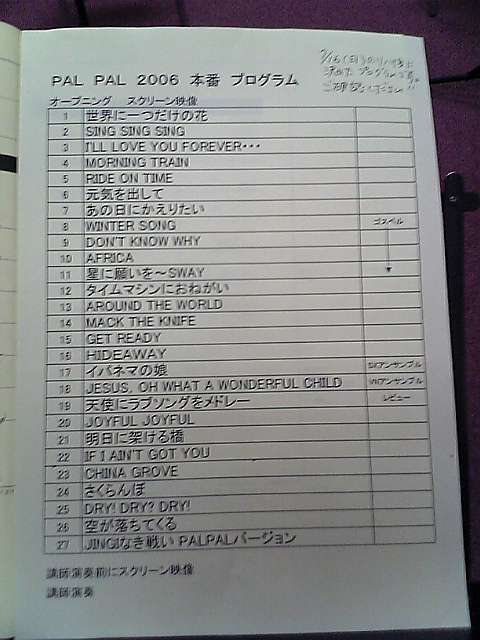 PAL PAL 2006 本番 プログラム
オープニング スクリーン映像
1 世界に一つだけの花
2 SING SING SING
3 I'LL LOVE YOU FOREVER・・・
4 MORNING TRAIN
5 RIDE ON TIME
6 元気を出して
7 あの日にかえりたい
8 WINTER SONG ゴスペル
9 DON'T KNOW WHY
10 AFRICA
11 星に願いを～SWAY
12 タイムマシンにおねがい
13 AROUND THE WORLD
14 MACK THE KNIFE
15 GET READY
16 HIDEAWAY
17 イパネマの娘 SXアンサンブル
18 JESUS, OH WHAT A WONDERFUL CHILD アンサンブル
19 天使にラブソングをメドレー レビュー
20 JOYFUL JOYFUL
21 明日に架ける橋
22 IF I AIN'T GOT YOU
23 CHINA GROVE
24 さくらんぼ
25 DRY! DRY? DRY!
26 空が落ちてくる
27 JINGIなき戦い PALPALバージョン
講師演奏前にスクリーン映像
講師演奏